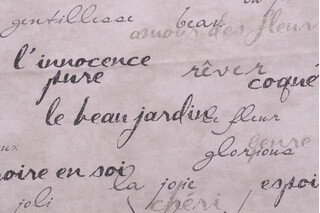 gentillesse beau
amour des fleur
l'innocence
pure rêver coqué
le beau jardin le fleur
genre
glorious
oire en soi
la joie espoi
joli chéri